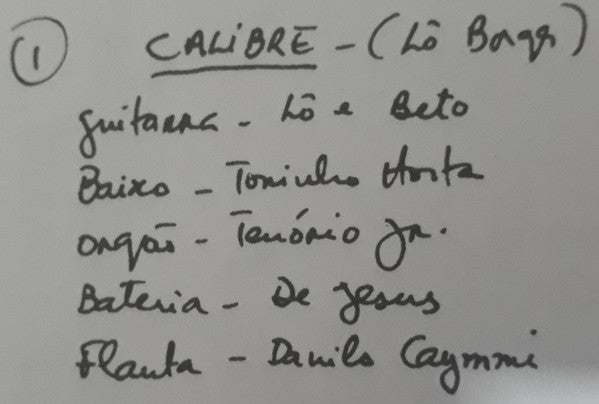 1 CALIBRE - (Lô Borges)
guitarra - Lô e Beto
Baixo - Toninho Horta
orgão - Tenório Jr.
Bateria - De Jesus
Flauta - Danilo Caymmi